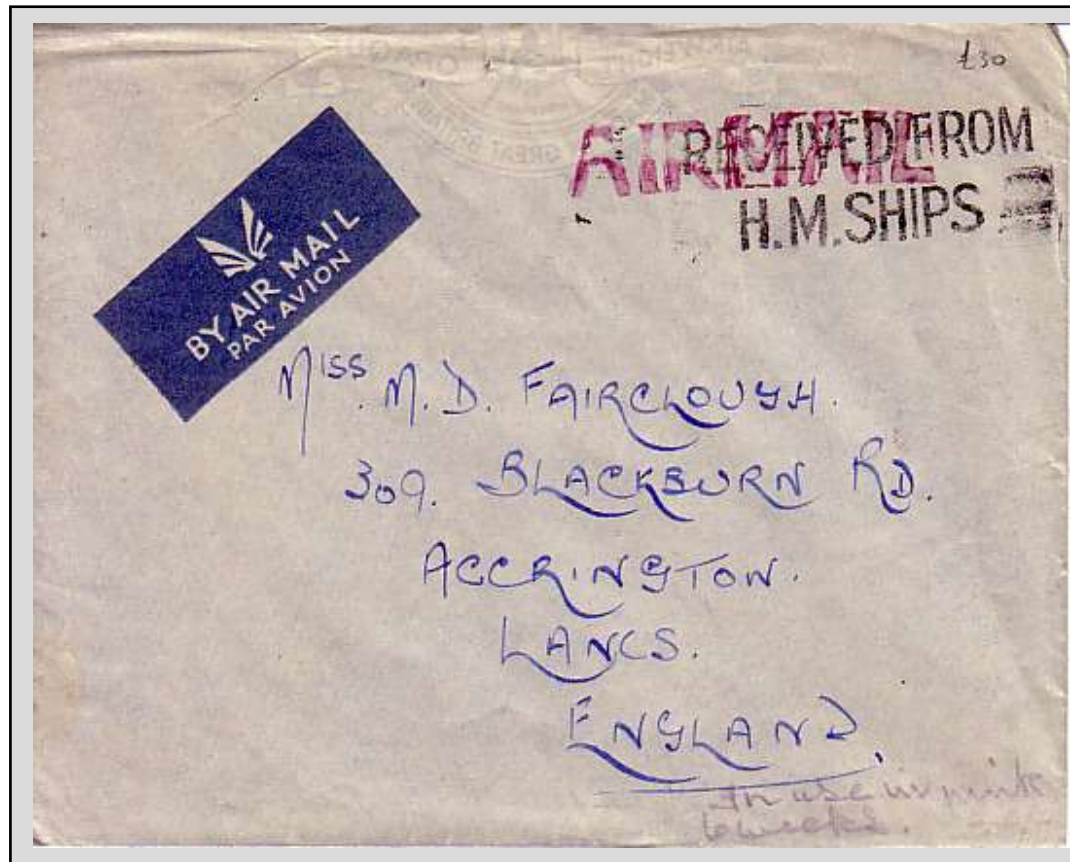 £30
AIRMAIL
RECEIVED FROM
H.M. SHIPS
BY AIR MAIL
PAR AVION
Miss. M. D. FAIRCLOUGH.
309. BLACKBURN RD.
ACCRINGTON.
LANCS.
ENGLAND.
in use in pink